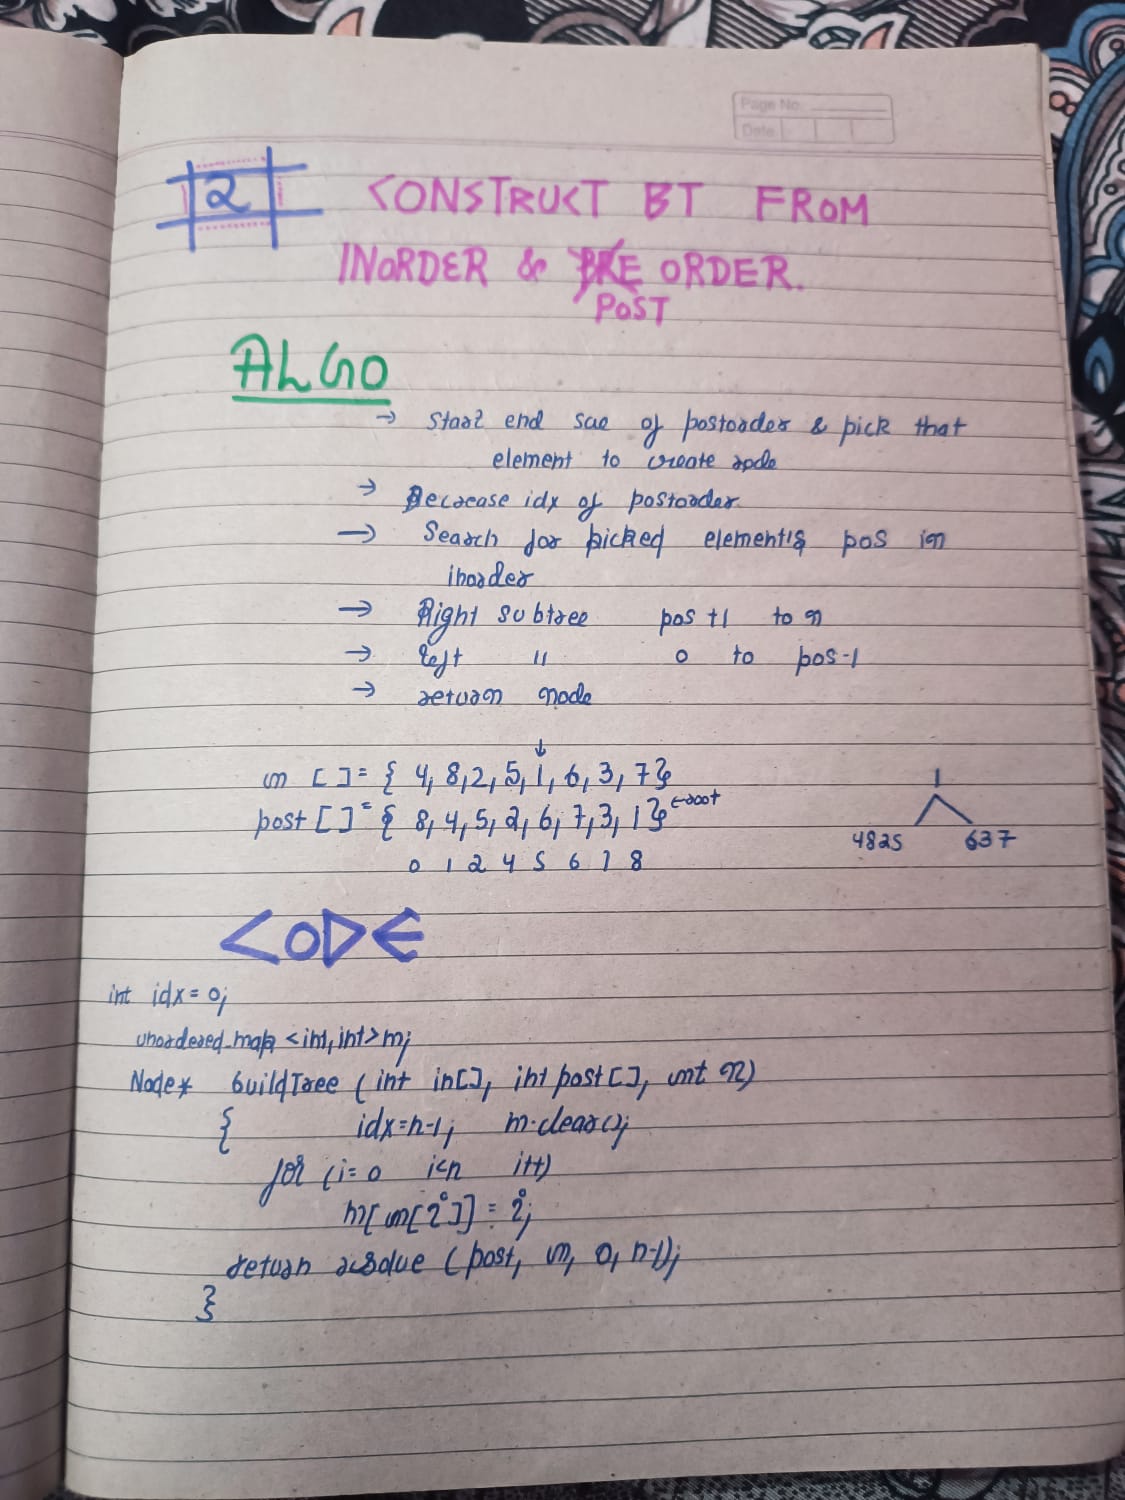 Page No.
Date
2 CONSTRUCT BT FROM
INORDER & ORDER.
POST
ALGO
→ Start end of postorder & pick that
element to create node
→ Decrease idx of postorder.
→ Search for picked element's pos in
inorder
→ Right subtree pos +1 to n
→ left " 0 to pos-1
→ return node
↓
in [ ] = { 4, 8, 2, 5, 1, 6, 3, 7}
post [ ] = { 8, 4, 5, 2, 6, 7, 3, 1} ←root
0 1 2 4 5 6 7 8
1
4825 637
CODE
int idx = 0;
unordered_map <int, int> m;
Node* buildTree (int in[], int post[], int n)
{ idx=n-1; m.clear();
for (i=0 i<n i++)
m[in[i]] = i;
return (post, in, 0, n-1);
}